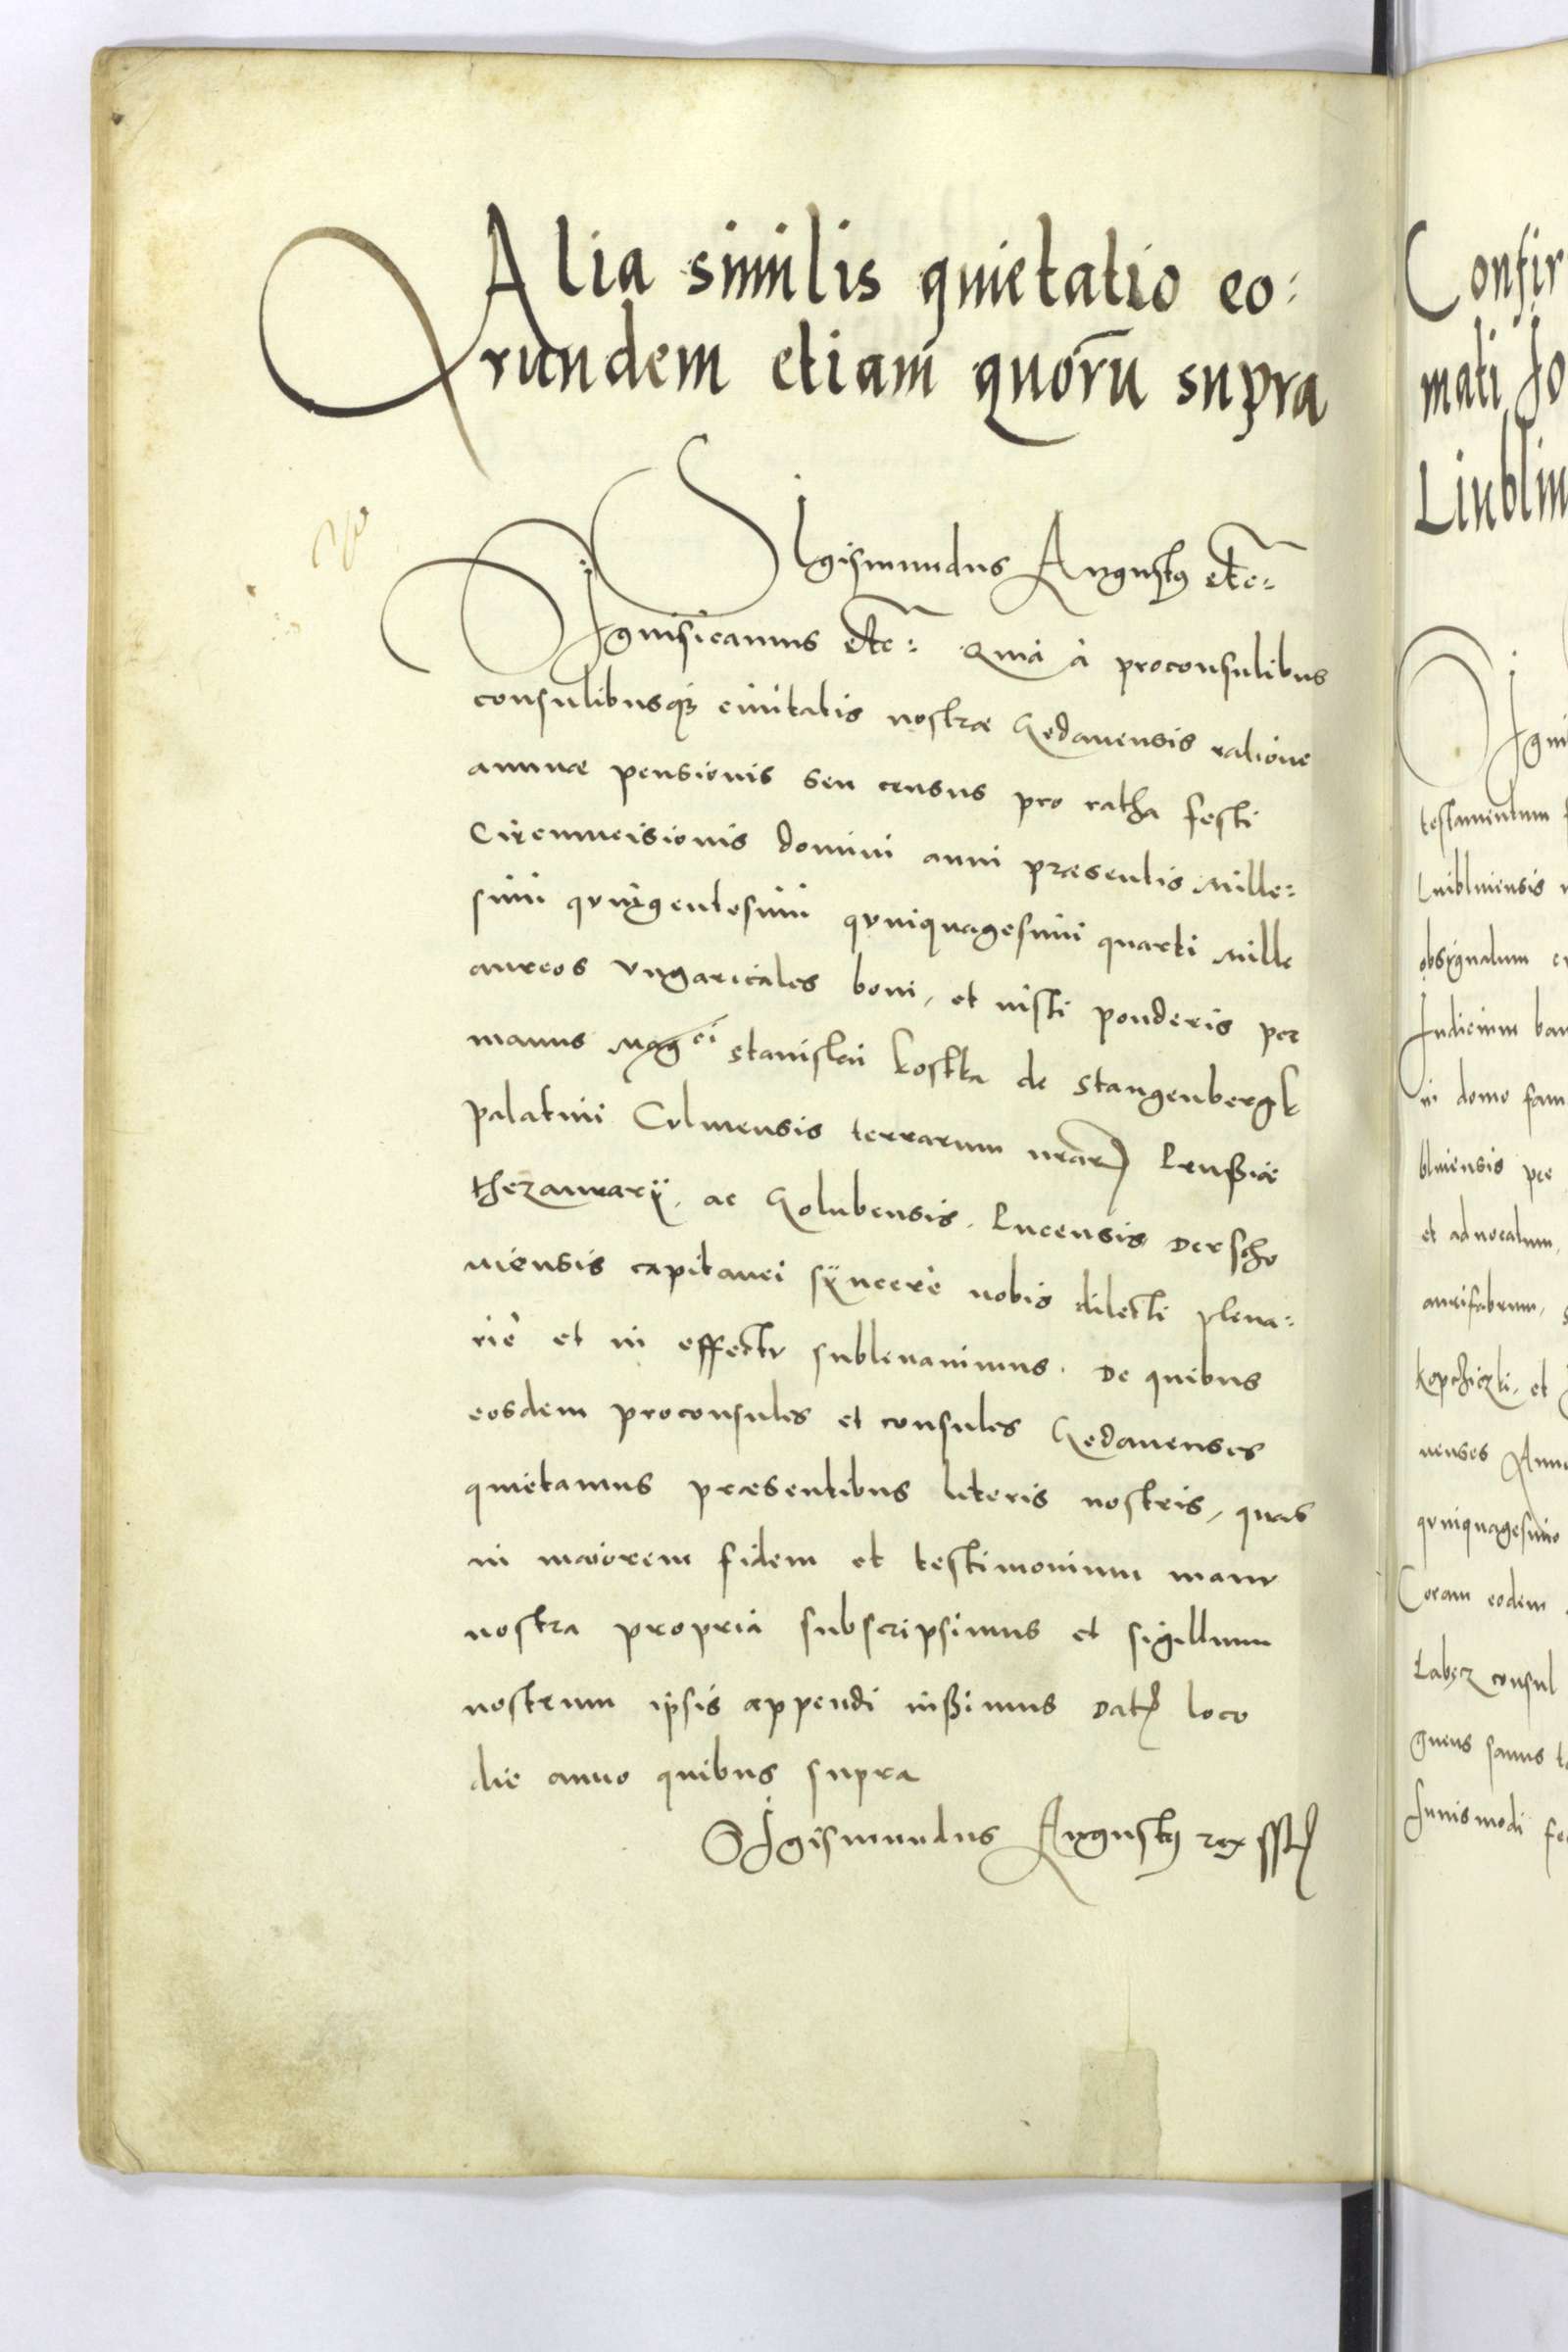 Alia similis quietatio eo:
rundem etiam quorū supra
SIgismundus Augustꝰ etc:
SIgnificamus etc: Quia à proconsulibus
consulibusqꝫ ciuitatis nostræ Gedanensis ratione
annuæ pensionis seu census pro ratha festi
Circumcisionis domini anni præsentis Mille:
simi quingentesimi quinquagesimi quarti Mille
aureos vngaricales boni, et iusti ponderis per
manus Mag^ci Stanislai Kostka de Stangenbergk
Palatini Culmensis terrarum nrar Prussiæ
thezaurarÿ, ac Golubensis, Lucensis Derscho
uiensis capitanei sÿncerè nobis dilecti plena:
riè et in effectu subleuauimus. De quibus
eosdem proconsules et consules Gedanenses
quietamus præsentibus literis nostris, quas
in maiorem fidem et testimonium manu
nostra propria subscripsimus et sigillum
nostrum ipsis appendi iussimus Dat loco
die anno quibus supra
SIgismundus Augustꝰ rex sst
Confir
mati Jo
Liublin
SIgni
testamentum
Luiblinensis
obsignatum
Iudicium ban
in domo fam
blinensis pre
et aduocatum,
aurifabrum,
Kopchiczki, et
nenses Anno
quinquagesimo
Coram eodem
Labez consul
guens sanus
huiusmodi